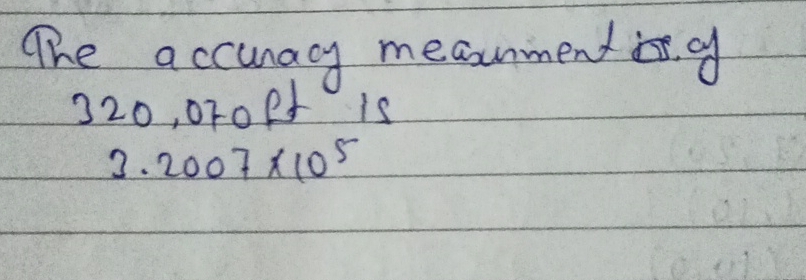 The accuracy measurment of
320,070ft is
3.2007 x 10⁵